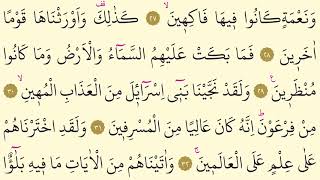 وَنَعْمَةٍ كَانُوا فِيهَا فَاكِهِينَۙ ﴿٢٧﴾ كَذٰلِكَ۠ وَاَوْرَثْنَاهَا قَوْمًا
اٰخَرِينَ ﴿٢٨﴾ فَمَا بَكَتْ عَلَيْهِمُ السَّمَٓاءُ وَالْاَرْضُ وَمَا كَانُوا
مُنْظَرِينَ۟ ﴿٢٩﴾ وَلَقَدْ نَجَّيْنَا بَنِٓي اِسْرَٓائِلَ مِنَ الْعَذَابِ الْمُهِينِۙ ﴿٣٠﴾
مِنْ فِرْعَوْنَۜ اِنَّهُ كَانَ عَالِيًا مِنَ الْمُسْرِفِينَ ﴿٣١﴾ وَلَقَدِ اخْتَرْنَاهُمْ
عَلٰى عِلْمٍ عَلَى الْعَالَمِينَۚ ﴿٣٢﴾ وَاٰتَيْنَاهُمْ مِنَ الْاٰيَاتِ مَا فِيهِ بَلٰٓؤٌ۬ا